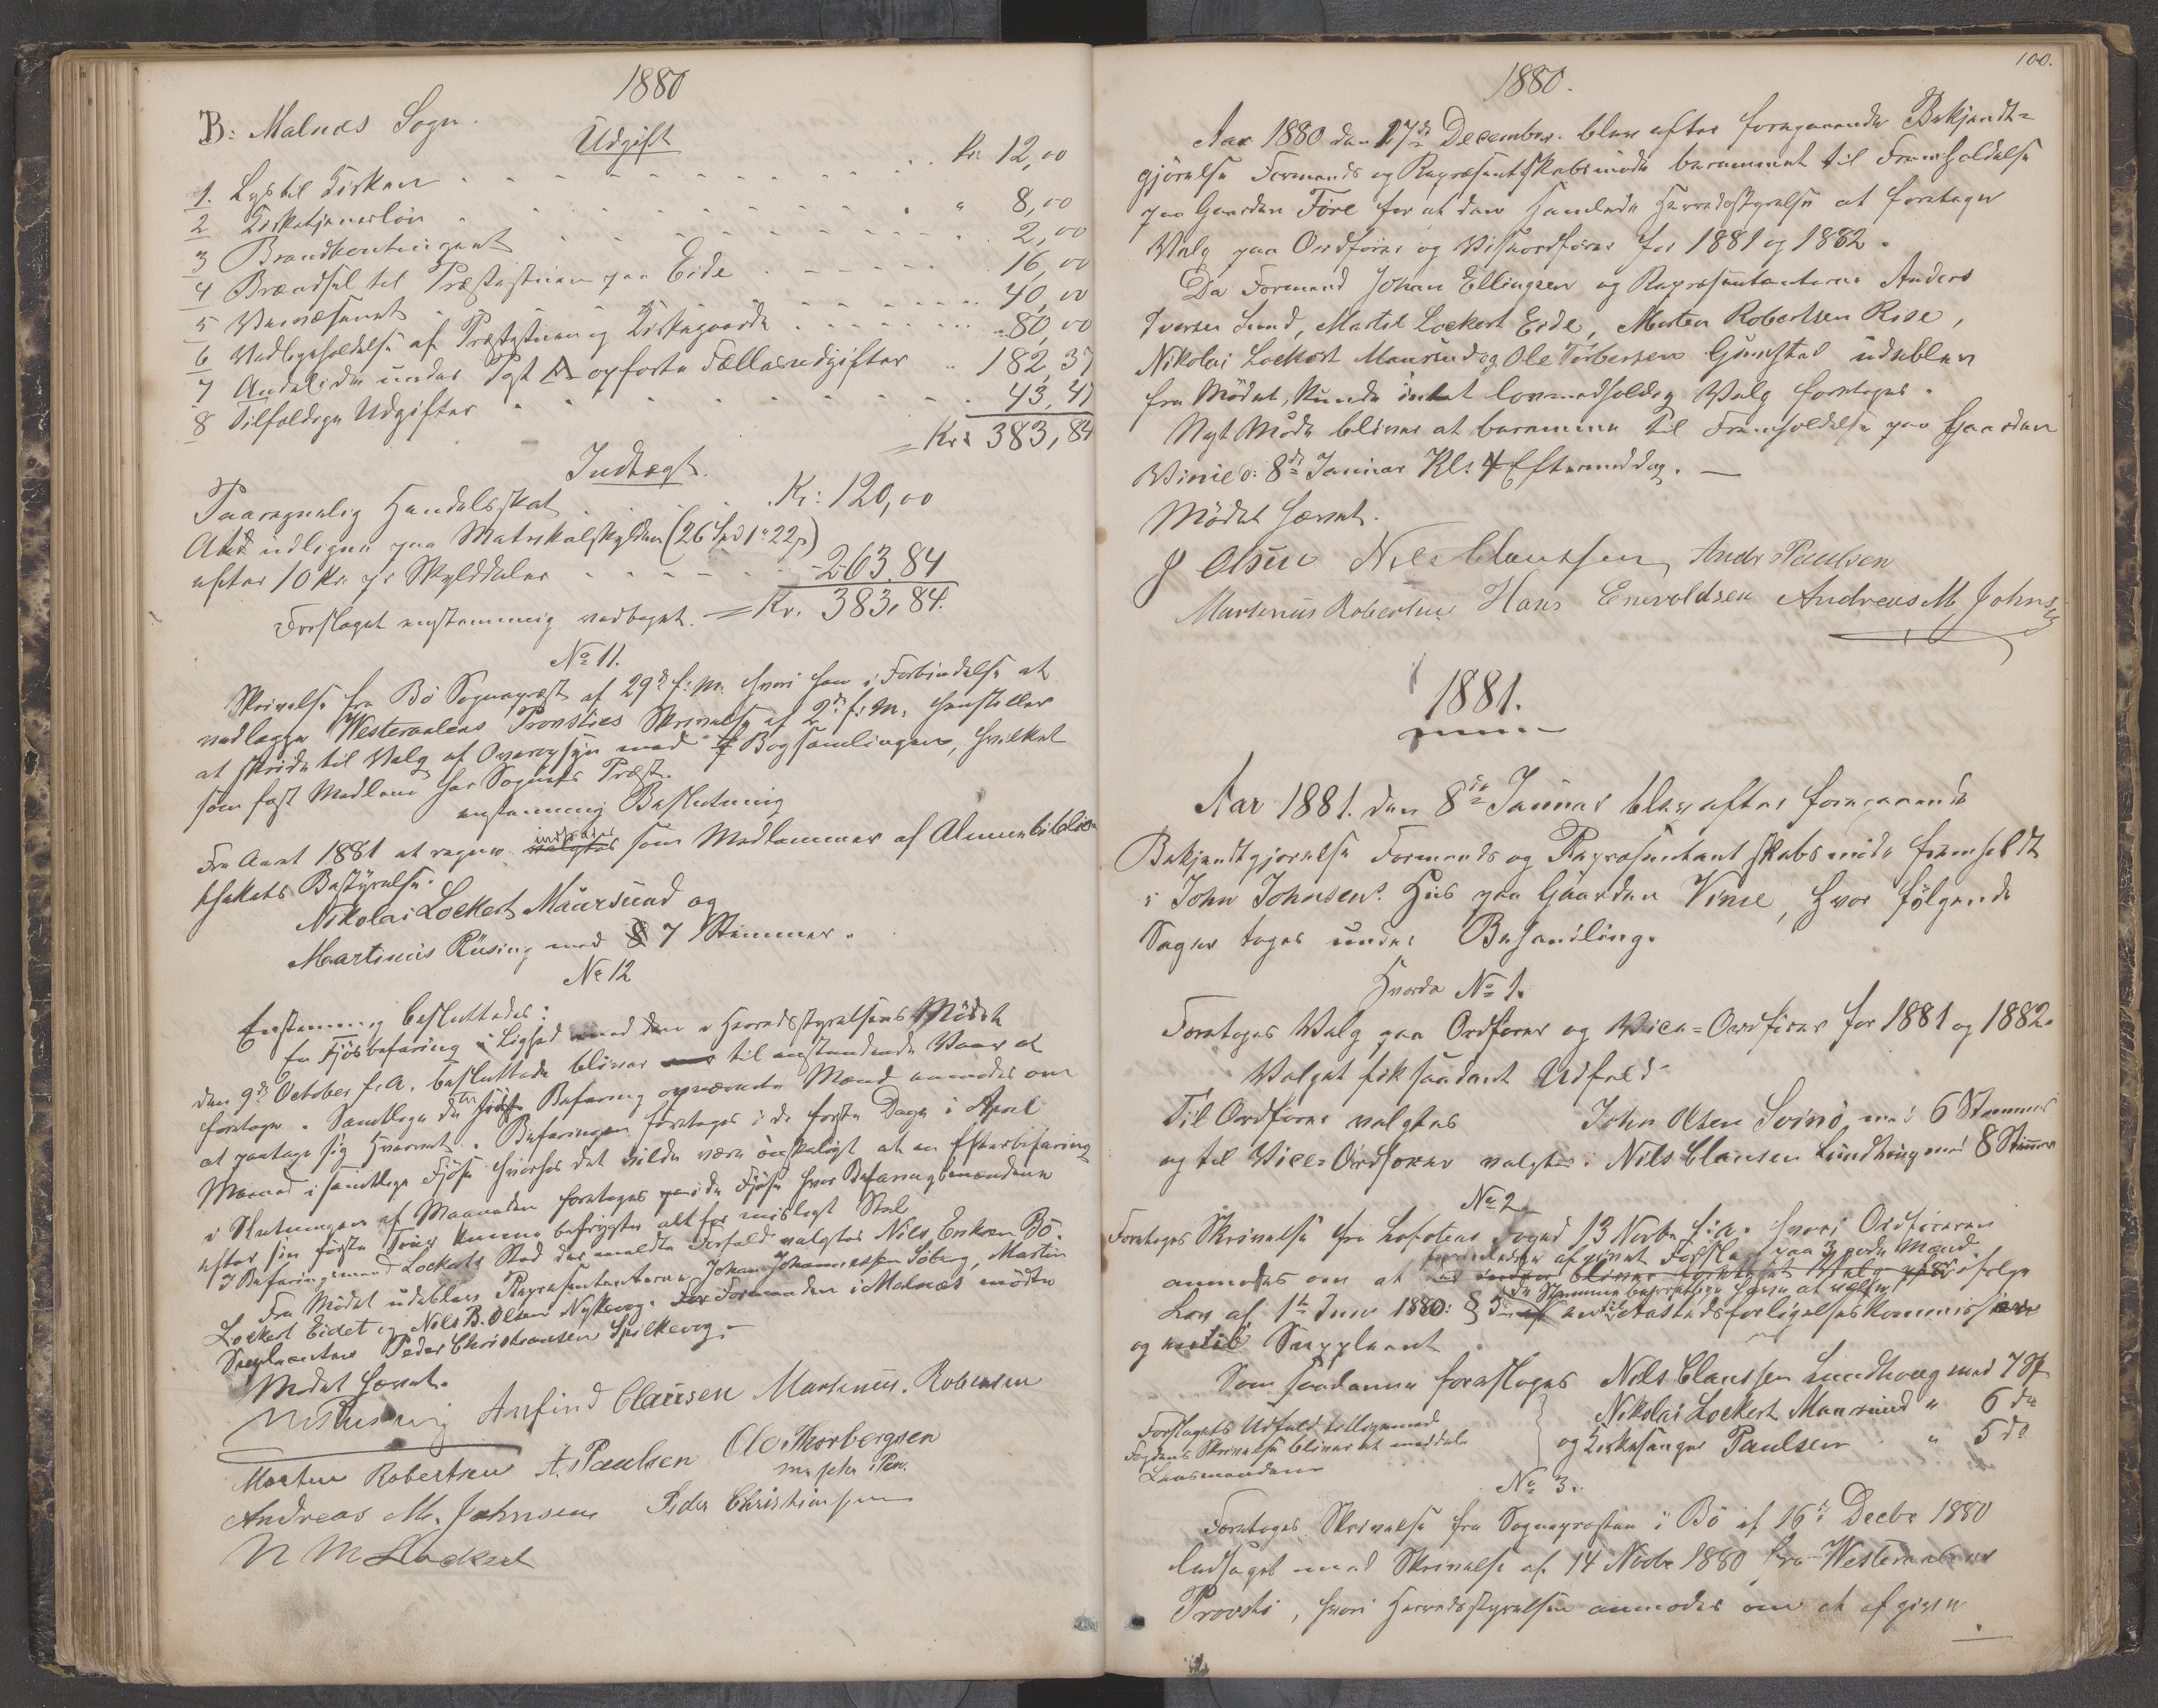 1880
B: Malnæs Sogn.
Udgift
1. Lys til Kirken . . . Kr. 12,00
2 Kirketjenerløn . . . " 8,00
3 Brandkontingent . . . 2,00
4 Brændsel til Præstestuen paa Eide . . . 16,00
5 Veivæsenet . . . 40,00
6 Vedligeholdelse af Præstestuen og Kirkegaarde . . . 80,00
7 Andel i de under Post A opførte Fællesudgifter " 182,37
8 Tilfældige Udgifter . . . 43,47
= Kr: 383,84
Indtægt.
Paaregnelig Handelsskat . . . Kr: 120,00
At udligne paa Matrikulskylden (26 Spd 1 " 22 s)
efter 10 Kr. pr Skylddaler . . . - 263,84
Forslaget enstemmig vedtaget. = Kr. 383,84.
No 11.
Skrivelse fra Bø Sognepræst af 29de f: M. hvori han i Forbindelse at
vedlægge Westeraalens Provsties Skrivelse af 2den f: M. henstiller
at skride til Valg af Overopsyn med Bogsamlingen, hvilket
som fast Medlem har Sognets Præst.
enstemmig Beslutning
Fra Aaret 1881 at regne valgtes som Medlemmer af Almuebiblio-
thekets Bestyrelse.
Nikolai Lockert Maursund og
Martinus Rusing med 7 Stemmer.
No 12
Enstemmig besluttedes:
En Fjøsbefaring i Lighed med den i Herredsstyrelsens Møde
den 9de October f. A. besluttede bliver til anstundende Vaar at
foretage. Samtlige de til Befaring opnævnte Mænd anmodes om
at paatage sig Hvervet. Befaringen foretages i de første Dage i April
Maaned i samtlige Fjøse hvorhos det vilde være ønskeligt at en Efterbefaring
i Slutningen af Maaneden foretages i de Fjøse hvor Befaringsmændene
efter sin første Tour kunne befrygte alt for misligt Stel
I Befaringsmand Lockerts Sted der meldte Forfald valgtes Nils Eriksen Bø.
Fra Mødet udeblev Repræsentanterne Johan Johannessen Søberg, Martin
Lockert Eidet og Nils B. Olsen Nykevog. For Formanden i Malnæs mødte
Suppleanten Peder Christiansen Spilkevog.
Mødet hævet.
M Rusing Anfind Clausen Martinus. Robertsen
Morten Robertsen A. Paulsen Ole Thorbergsen
m. paaholden Pen.
Andreas M. Johnsen Peder Christiansen
N M Lockert
100.
1880.
Aar 1880 den 27de December. blev efter foregaaende Bekjendt-
gjørelse Formands og Repræsentskabsmøde berammet til Fremholdelse
paa Gaarden Føre for at den samlede Herredsstyrelse at foretage
Valg paa Ordfører og Viseordfører for 1881 og 1882.
Da Formand Johan Ellingsen og Repræsentanterne Anders
Iversen Sund, Martin Lockert Eide, Morten Robertsen Rise,
Nikolai Lockert Maursund og Ole Torbersen Guvstad udeblev
fra Mødet, kunde intet lovmedholdig Valg foretages.
Nyt Møde bliver at beramme til Fremholdelse paa Gaarden
Winie d: 8de Januar Kl: 4 Eftermiddag. —
Mødet hævet.
J Olsen Nils Clausen Andr Paulsen
Martinus Robertsen Hans Enevoldsen Andreas M. Johnsen
1881.
Aar 1881. den 8de Januar blev efter foregaaende
Bekjendtgjørelse Formands og Repræsentantskabsmøde fremholdt
i John Johnsens Hus paa Gaarden Vinie, hvor følgende
Sager toges under Behandling.
Hvorda No 1.
Foretoges Valg paa Ordfører og Vice-Ordfører for 1881 og 1882.
Valget fik saadant Udfald
Til Ordfører valgtes John Olsen Svinø med 6 Stemmer
og til Vice-Ordfører valgtes Nils Clausen Lundhoug med 8 Stemmer
No 2
Foretoges Skrivelse fra Lofotens Foged 13 Novbr f. A. hvori Ordføreren
anmodes om at afgivet Forslag paa 3 gode Mænd
Lov af 1te Juni 1880: § 3 Aastedsforligelseskommissær
og Suppleant
Som saadanne foresloges Nils Claussen Lundhoug med 7 St
Nikolai Lockert Maursund " 6 do
og Kirkesanger Paulsen " 5 do
Forslagets Udfald tilligemed
Fogdens Skrivelse bliver at meddele
Lensmanden
No 3.
Foretoges Skrivelse fra Sognepræsten i Bø af 16de Decbr 1880
ledsaget med Skrivelse af 14 Novbr 1880 fra Westeraalens
Provsti, hvori Herredsstyrelsen anmodes om at afgive